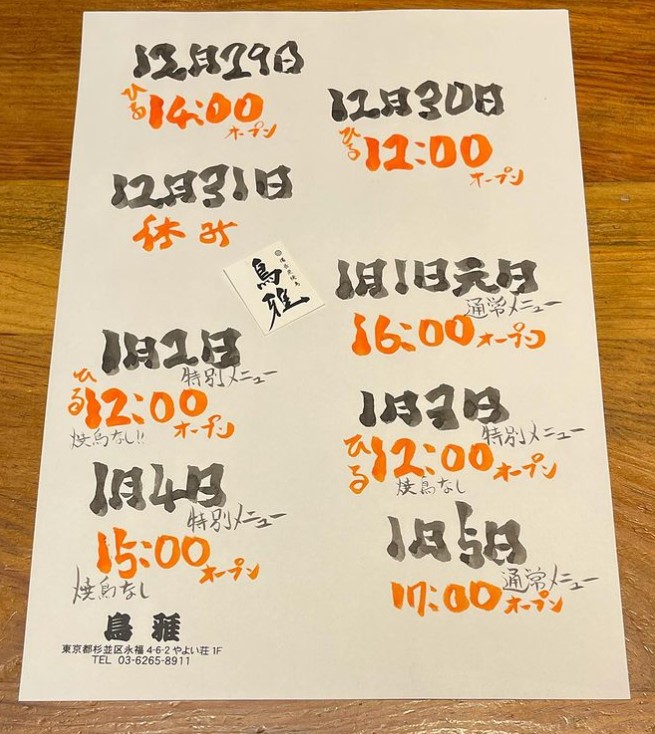 12月29日
ひる 14:00 オープン
12月30日
ひる 12:00 オープン
12月31日
休み
鳥雅
1月1日元日
通常メニュー
16:00 オープン
1月2日
特別メニュー
ひる 12:00 オープン
焼鳥なし!!
1月3日
特別メニュー
ひる 12:00 オープン
焼鳥なし
1月4日
特別メニュー
15:00 オープン
焼鳥なし
1月5日
通常メニュー
17:00 オープン
鳥雅
東京都杉並区永福4-6-2 やよい荘1F
TEL 03-6265-8911